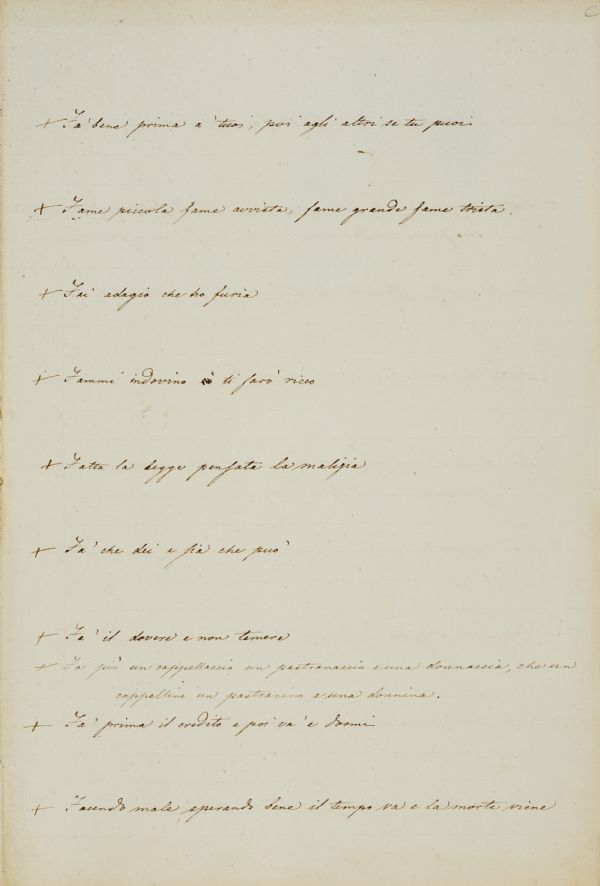 + Fa' bene prima a' tuoi, poi agli altri se tu puoi
+ Fame piccola fame avvista, fame grande fame trista.
+ Fai adagio che ho furia
+ Fammi indovino e ti farò ricco
+ Fatta la legge pensata la malizia
+ Fa' che dei e sia che può
+ Fa' il dovere e non temere
+ Fa più un cappellaccio un pastranaccio e una donnaccia, che un
cappellino un pastranino e una donnina.
+ Fa' prima il credito e poi va' e dormi
+ Facendo male sperando bene il tempo va e la morte viene